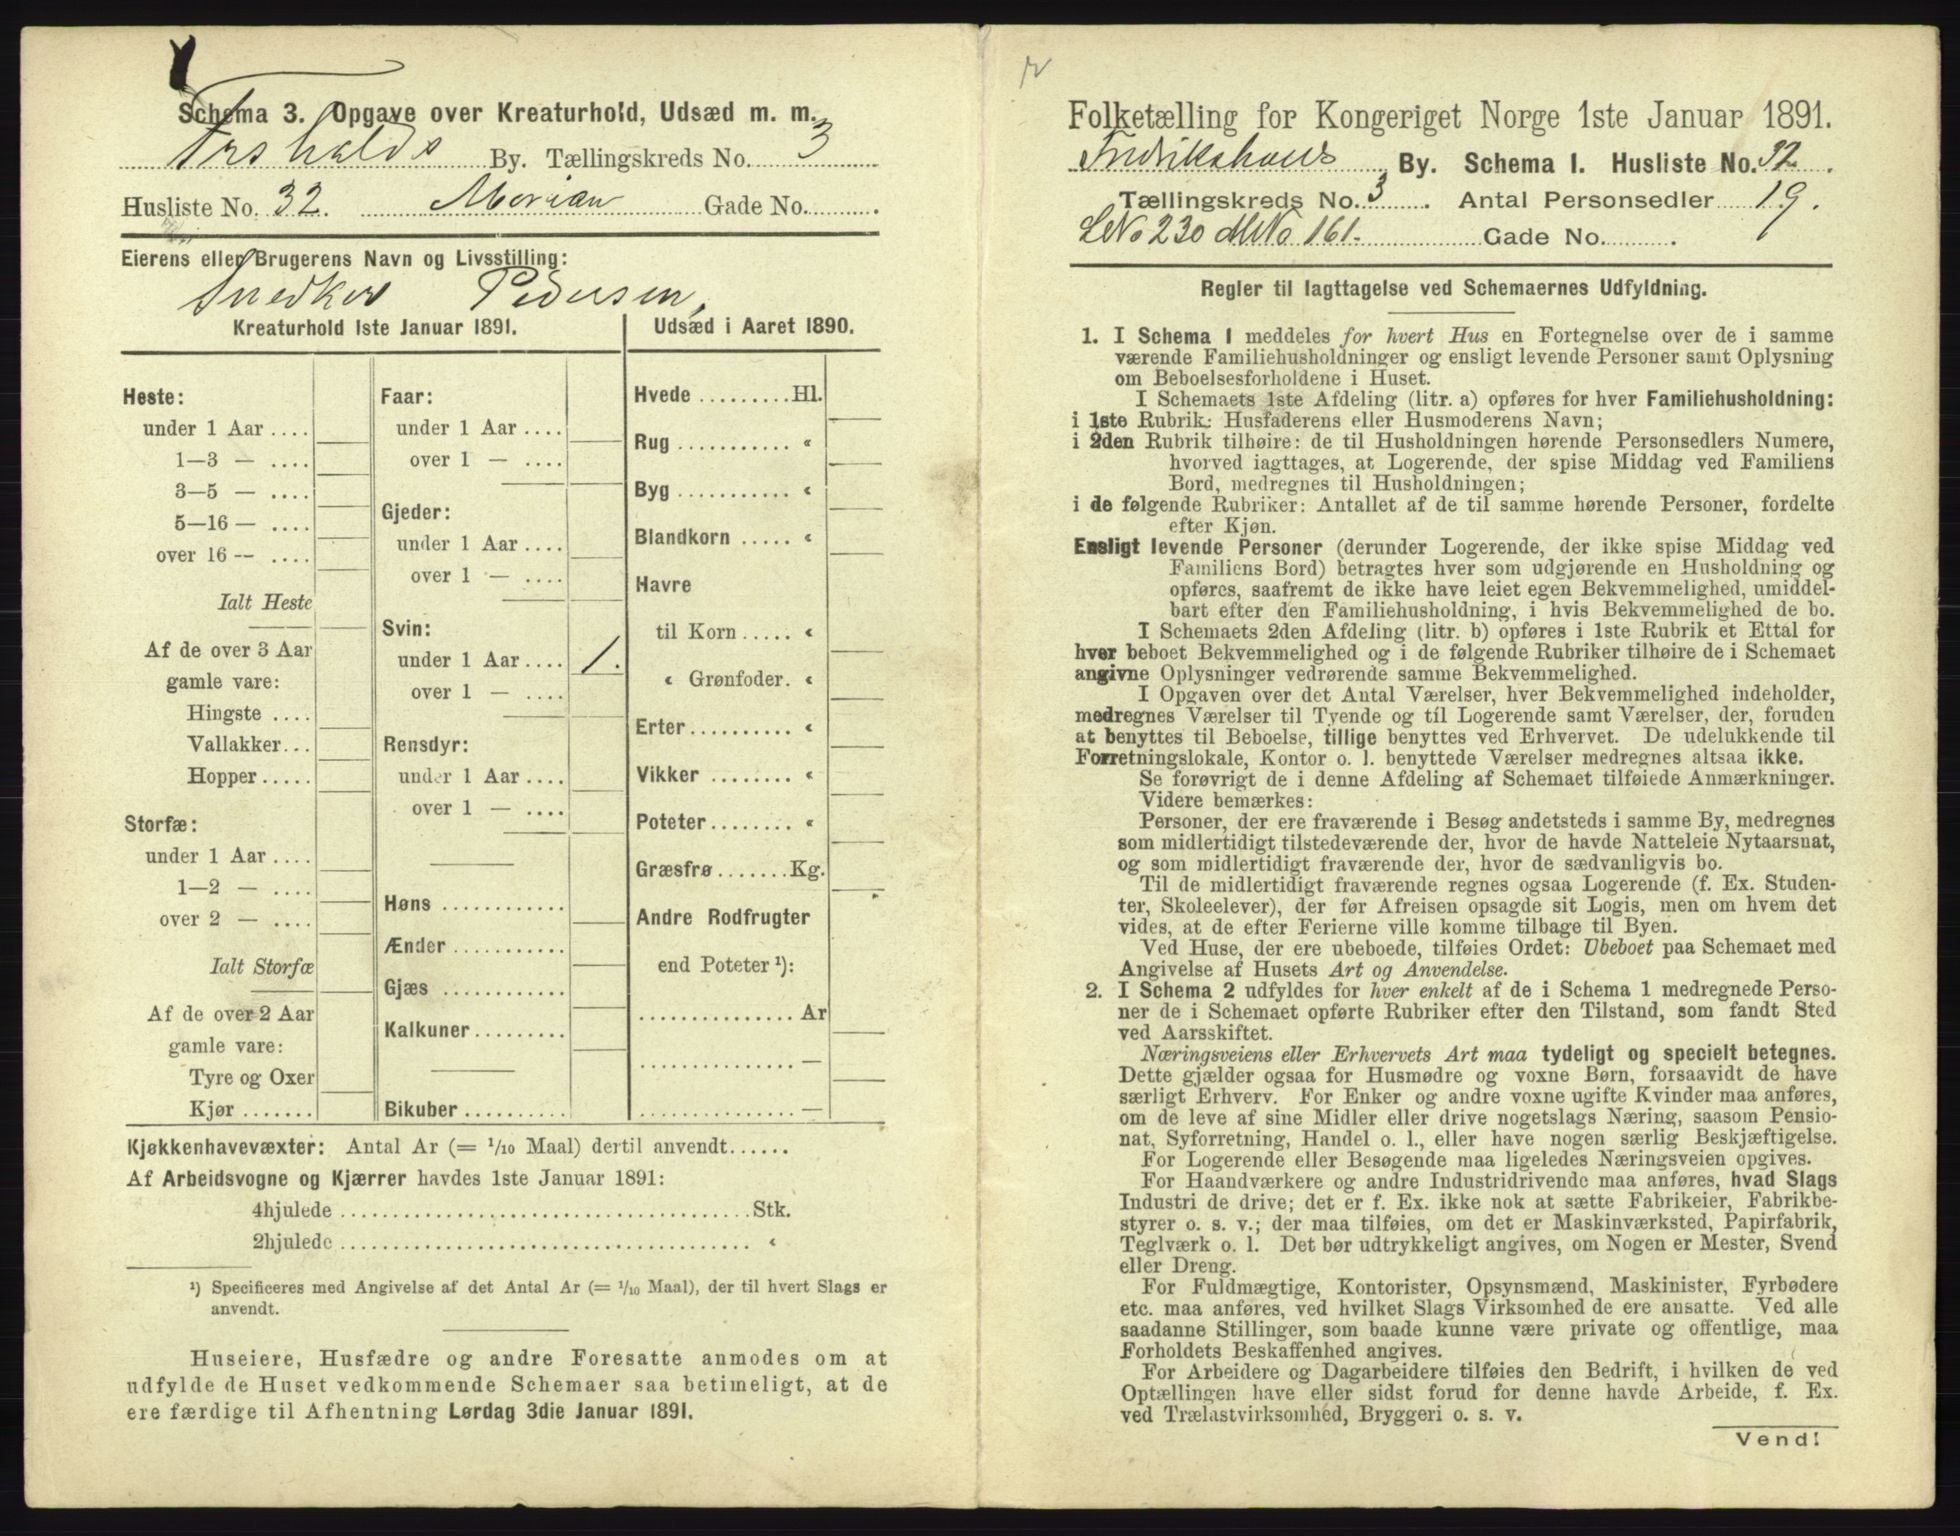 Schema 3. Opgave over Kreaturhold, Udsæd m. m.
Frshalds By. Tællingskreds No. 3
Husliste No. 32. Morian Gade No.
Eierens eller Brugerens Navn og Livsstilling:
Snedker Pedersen,
Kreaturhold 1ste Januar 1891.
Heste:
under 1 Aar ....
1—3 — ....
3—5 — ....
5—16 — ....
over 16 — ....
Ialt Heste
Af de over 3 Aar
gamle vare:
Hingste ....
Vallakker...
Hopper .....
Storfæ:
under 1 Aar ....
1—2 — ....
over 2 — ....
Ialt Storfæ
Af de over 2 Aar
gamle vare:
Tyre og Oxer
Kjør .......
Faar:
under 1 Aar ....
over 1 — ....
Gjeder:
under 1 Aar ....
over 1 — ....
Svin:
under 1 Aar .... 1.
over 1 — ....
Rensdyr:
under 1 Aar ....
over 1 — ....
Høns ............
Ænder ...........
Gjæs ............
Kalkuner.........
Bikuber ..........
Udsæd i Aaret 1890.
Hvede .........Hl.
Rug ........... «
Byg ........... «
Blandkorn ..... «
Havre
til Korn ..... «
« Grønfoder. «
Erter.......... «
Vikker ........ «
Poteter........ «
Græsfrø.......Kg.
Andre Rodfrugter
end Poteter ¹):
............... Ar
............... —
............... —
Kjøkkenhavevæxter: Antal Ar (= 1/10 Maal) dertil anvendt......
Af Arbeidsvogne og Kjærrer havdes 1ste Januar 1891:
4hjulede ......................................Stk.
2hjulede ...................................... «
¹) Specificeres med Angivelse af det Antal Ar (= 1/10 Maal), der til hvert Slags er
anvendt.
Huseiere, Husfædre og andre Foresatte anmodes om at
udfylde de Huset vedkommende Schemaer saa betimeligt, at de
ere færdige til Afhentning Lørdag 3die Januar 1891.
Folketælling for Kongeriget Norge 1ste Januar 1891.
Fredrikshalds By. Schema 1. Husliste No. 32.
Tællingskreds No. 3. Antal Personsedler 19.
LNo 230 MNo 161. Gade No.
Regler til Iagttagelse ved Schemaernes Udfyldning.
1. I Schema 1 meddeles for hvert Hus en Fortegnelse over de i samme
værende Familiehusholdninger og ensligt levende Personer samt Oplysning
om Beboelsesforholdene i Huset.
I Schemaets 1ste Afdeling (litr. a) opføres for hver Familiehusholdning:
i 1ste Rubrik: Husfaderens eller Husmoderens Navn;
i 2den Rubrik tilhøire: de til Husholdningen hørende Personsedlers Numere,
hvorved iagttages, at Logerende, der spise Middag ved Familiens
Bord, medregnes til Husholdningen;
i de følgende Rubriker: Antallet af de til samme hørende Personer, fordelte
efter Kjøn.
Ensligt levende Personer (derunder Logerende, der ikke spise Middag ved
Familiens Bord) betragtes hver som udgjørende en Husholdning og
opføres, saafremt de ikke have leiet egen Bekvemmelighed, umiddel-
bart efter den Familiehusholdning, i hvis Bekvemmelighed de bo.
I Schemaets 2den Afdeling (litr. b) opføres i 1ste Rubrik et Ettal for
hver beboet Bekvemmelighed og i de følgende Rubriker tilhøire de i Schemaet
angivne Oplysninger vedrørende samme Bekvemmelighed.
I Opgaven over det Antal Værelser, hver Bekvemmelighed indeholder,
medregnes Værelser til Tyende og til Logerende samt Værelser, der, foruden
at benyttes til Beboelse, tillige benyttes ved Erhvervet. De udelukkende til
Forretningslokale, Kontor o. l. benyttede Værelser medregnes altsaa ikke.
Se forøvrigt de i denne Afdeling af Schemaet tilføiede Anmærkninger.
Videre bemærkes:
Personer, der ere fraværende i Besøg andetsteds i samme By, medregnes
som midlertidigt tilstedeværende der, hvor de havde Natteleie Nytaarsnat,
og som midlertidigt fraværende der, hvor de sædvanligvis bo.
Til de midlertidigt fraværende regnes ogsaa Logerende (f. Ex. Studen-
ter, Skoleelever), der før Afreisen opsagde sit Logis, men om hvem det
vides, at de efter Ferierne ville komme tilbage til Byen.
Ved Huse, der ere ubeboede, tilføies Ordet: Ubeboet paa Schemaet med
Angivelse af Husets Art og Anvendelse.
2. I Schema 2 udfyldes for hver enkelt af de i Schema 1 medregnede Perso-
ner de i Schemaet opførte Rubriker efter den Tilstand, som fandt Sted
ved Aarsskiftet.
Næringsveiens eller Erhvervets Art maa tydeligt og specielt betegnes.
Dette gjælder ogsaa for Husmødre og voxne Børn, forsaavidt de have
særligt Erhverv. For Enker og andre voxne ugifte Kvinder maa anføres,
om de leve af sine Midler eller drive nogetslags Næring, saasom Pensio-
nat, Syforretning, Handel o. l., eller have nogen særlig Beskjæftigelse.
For Logerende eller Besøgende maa ligeledes Næringsveien opgives.
For Haandværkere og andre Industridrivende maa anføres, hvad Slags
Industri de drive; det er f. Ex. ikke nok at sætte Fabrikeier, Fabrikbe-
styrer o. s. v.; der maa tilføies, om det er Maskinværksted, Papirfabrik,
Teglværk o. l. Det bør udtrykkeligt angives, om Nogen er Mester, Svend
eller Dreng.
For Fuldmægtige, Kontorister, Opsynsmænd, Maskinister, Fyrbødere
etc. maa anføres, ved hvilket Slags Virksomhed de ere ansatte. Ved alle
saadanne Stillinger, som baade kunne være private og offentlige, maa
Forholdets Beskaffenhed angives.
For Arbeidere og Dagarbeidere tilføies den Bedrift, i hvilken de ved
Optællingen have eller sidst forud for denne havde Arbeide, f. Ex.
ved Trælastvirksomhed, Bryggeri o. s. v.
Vend!